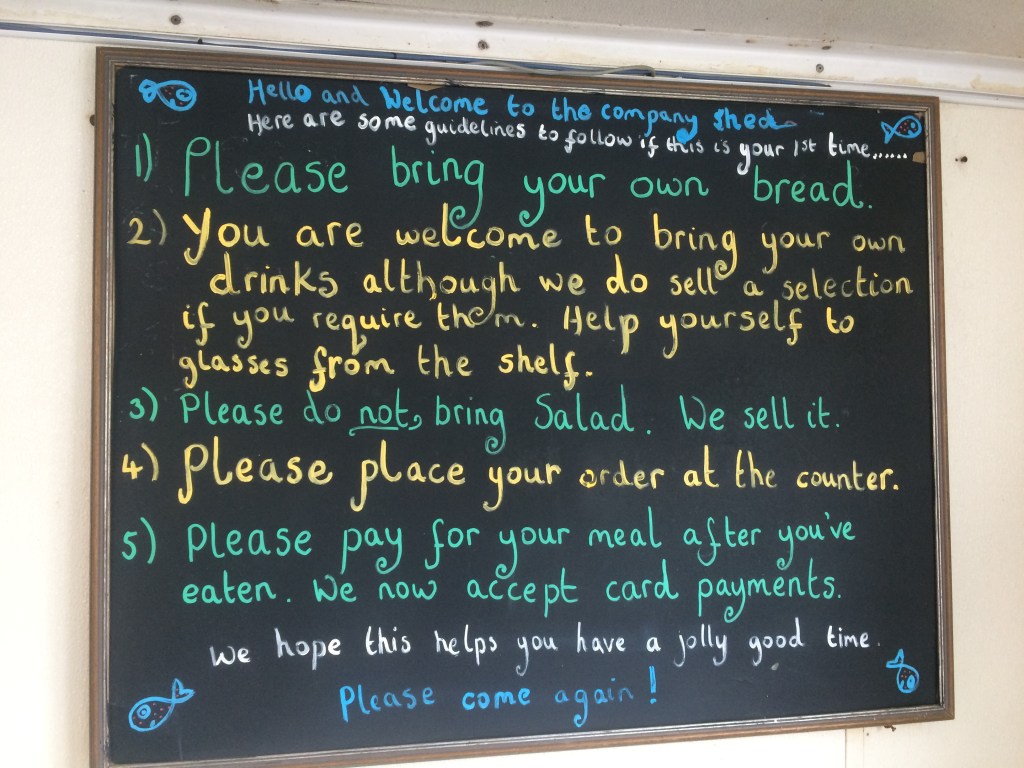 Hello and Welcome to the company shed
Here are some guidelines to follow if this is your 1st time......
1) Please bring your own bread.
2) You are welcome to bring your own
drinks although we do sell a selection
if you require them. Help yourself to
glasses from the shelf.
3) Please do not bring Salad. We sell it.
4) Please place your order at the counter.
5) Please pay for your meal after you've
eaten. We now accept card payments.
We hope this helps you have a jolly good time.
Please come again!